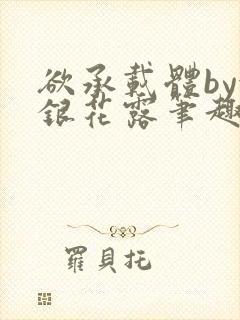 欲承載體by
銀花露筆趣
羅貝托